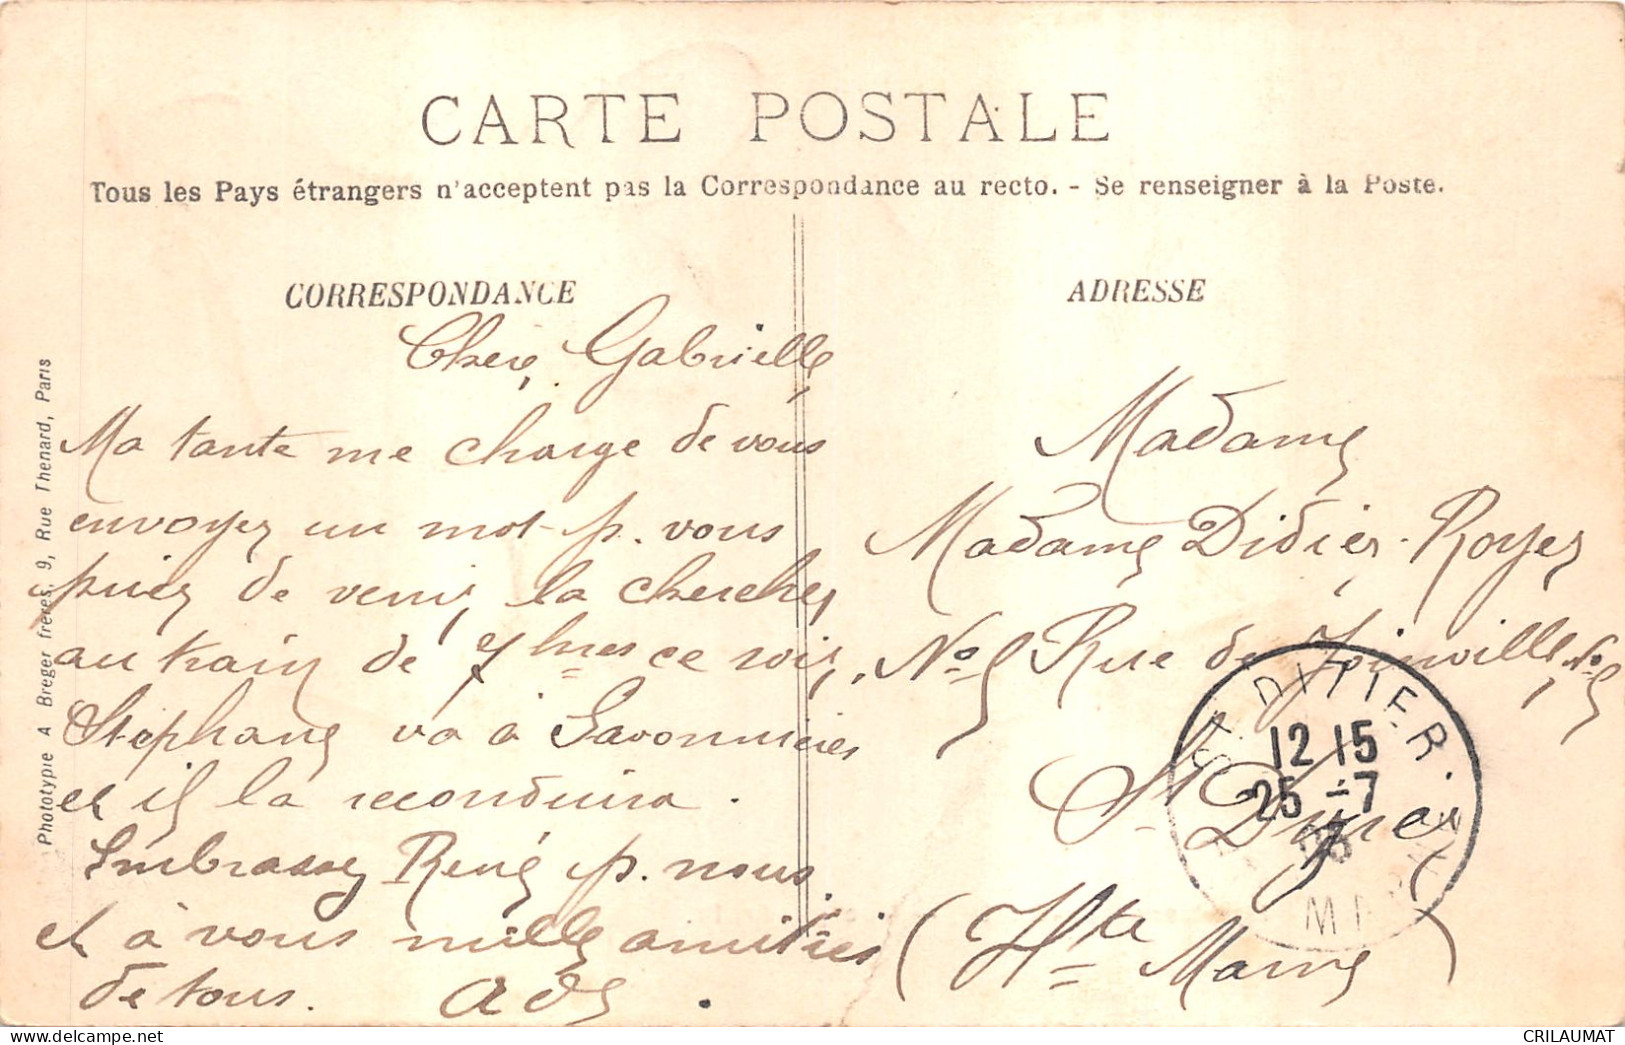 CARTE POSTALE
Tous les Pays étrangers n'acceptent pas la Correspondance au recto. - Se renseigner à la Poste.
CORRESPONDANCE
Chère Gabrielle,
Ma tante me charge de vous
envoyer un mot p. vous
prier de venir la chercher
au train de 7 hres ce soir,
Stéphane va à Savonnières
et il la reconduira.
Embrassez René p. nous
et à vous mille amitiés
de tous.
ADRESSE
Madame
Madame Didier-Royer
No 5 Rue de Joinville No 5
St Dizier
(Hte Marne)
ST DIZIER
12 15
25 -7
Phototypie A Breger frères, 9, Rue Thenard, Paris
CRILAUMAT